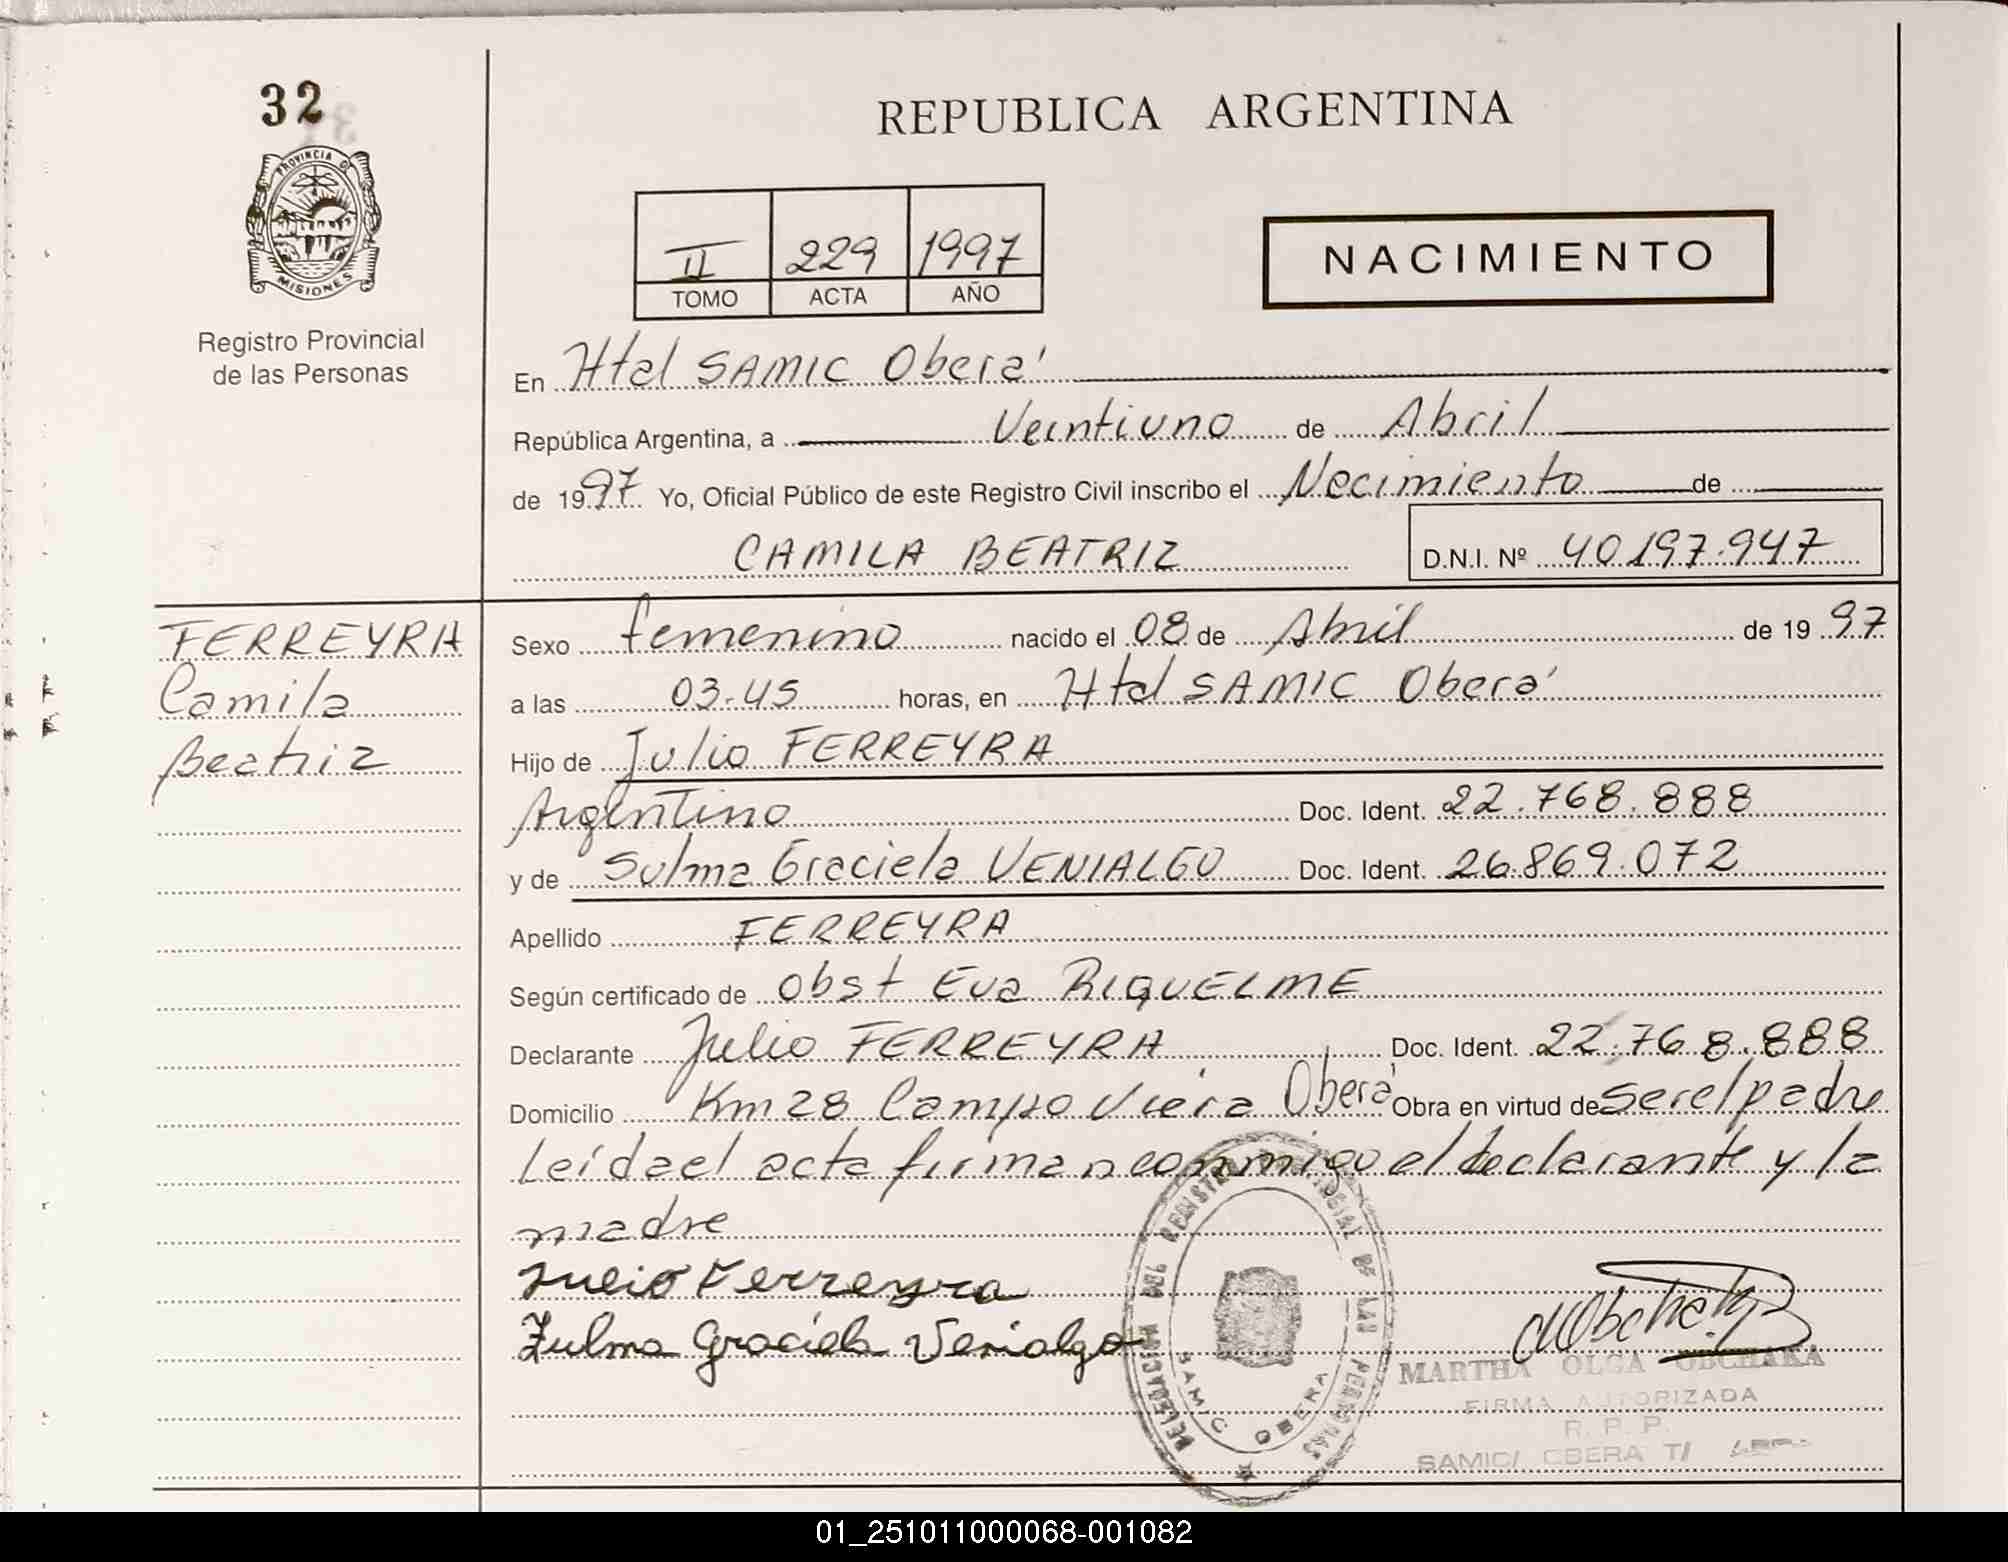 32
REPUBLICA ARGENTINA
PROVINCIA D
MISIONES
Registro Provincial
de las Personas
II 229 1997
TOMO ACTA AÑO
NACIMIENTO
En Htal SAMIC Oberá
República Argentina, a Veintiuno de Abril
de 1997 Yo, Oficial Público de este Registro Civil inscribo el Nacimiento de
CAMILA BEATRIZ D.N.I. Nº 40.197.947
FERREYRA
Camila
Beatriz
Sexo femenino nacido el 08 de Abril de 1997
a las 03-45 horas, en Htal SAMIC Oberá
Hijo de Julio FERREYRA
Argentino Doc. Ident. 22.768.888
y de Sulma Graciela VENIALGO Doc. Ident. 26.869.072
Apellido FERREYRA
Según certificado de obst Eva RIQUELME
Declarante Julio FERREYRA Doc. Ident. 22.768.888
Domicilio Km 28 Campo Viera Oberá Obra en virtud de ser el padre
Leída el acta firman conmigo el declarante y la
madre
Julio Ferreyra
Zulma Graciela Venialgo
DELEGACION DEL REGISTRO PROVINCIAL DE LAS PERSONAS
SAMIC OBERA
MObchaka
MARTHA OLGA OBCHAKA
FIRMA AUTORIZADA
R. P. P.
SAMIC/ OBERA T/
01_251011000068-001082